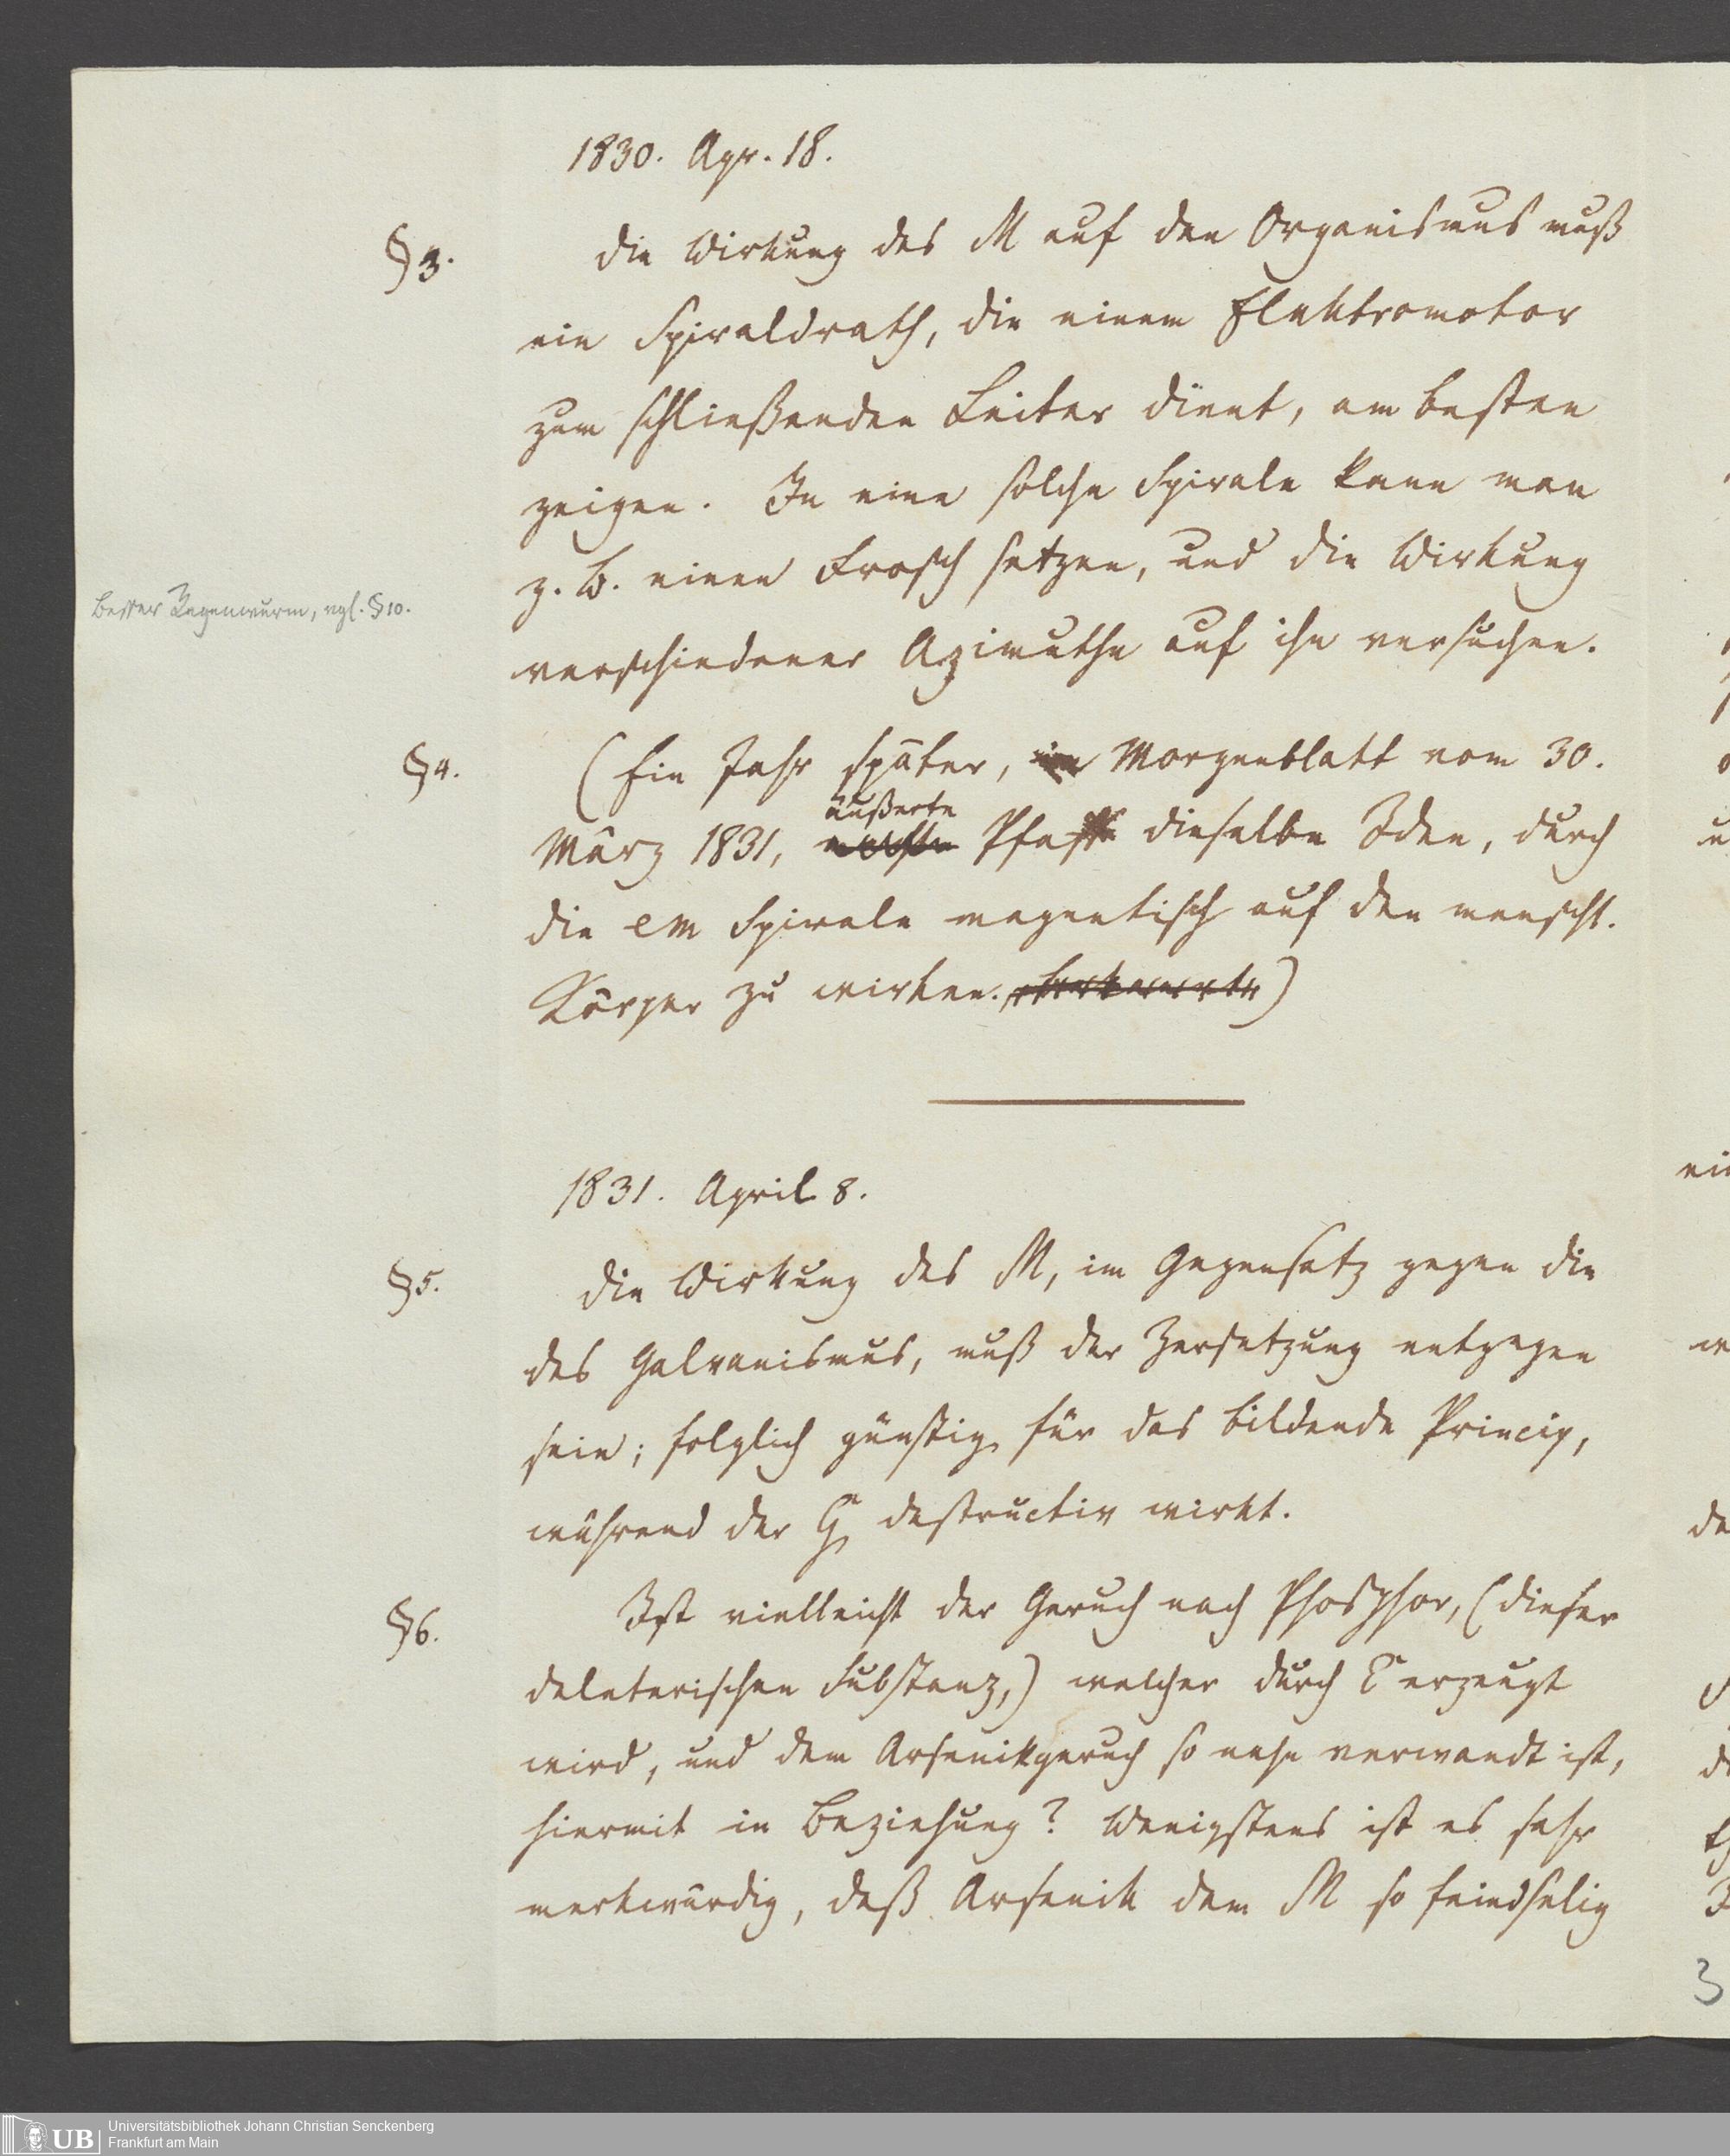 1830. Apr. 18.
§3.
Die Wirkung des M auf den Organismus muß
ein Spiraldrath, die einem Elektromotor
zum schließenden Leiter dient, am besten
zeigen. In eine solche Spirale kann man
z. B. einen Frosch setzen, und die Wirkung
Besser Regenwurm, vgl. §10.
verschiedener Azimuthe auf ihn versuchen.
§4.
(Ein Jahr später, im Morgenblatt vom 30.
äußerte
März 1831, Pfaff dieselbe Idee, durch
die em Spirale magnetisch auf den menschl.
Körper zu wirken. )
1831. April 8.
§5.
Die Wirkung des M, im Gegensatz gegen die
des Galvanismus, muß der Zersetzung entgegen
sein; folglich günstig für das bildende Princip,
während der G destructiv wirkt.
§6.
Ist vielleicht der Geruch nach Phosphor, (dieser
deleterischen Substanz,) welcher durch E erzeugt
wird, und dem Arsenikgeruch so nahe verwandt ist,
hiermit in Beziehung? Wenigstens ist es sehr
merkwürdig, daß Arsenik dem M so feindselig
3
Universitätsbibliothek Johann Christian Senckenberg
Frankfurt am Main
UB